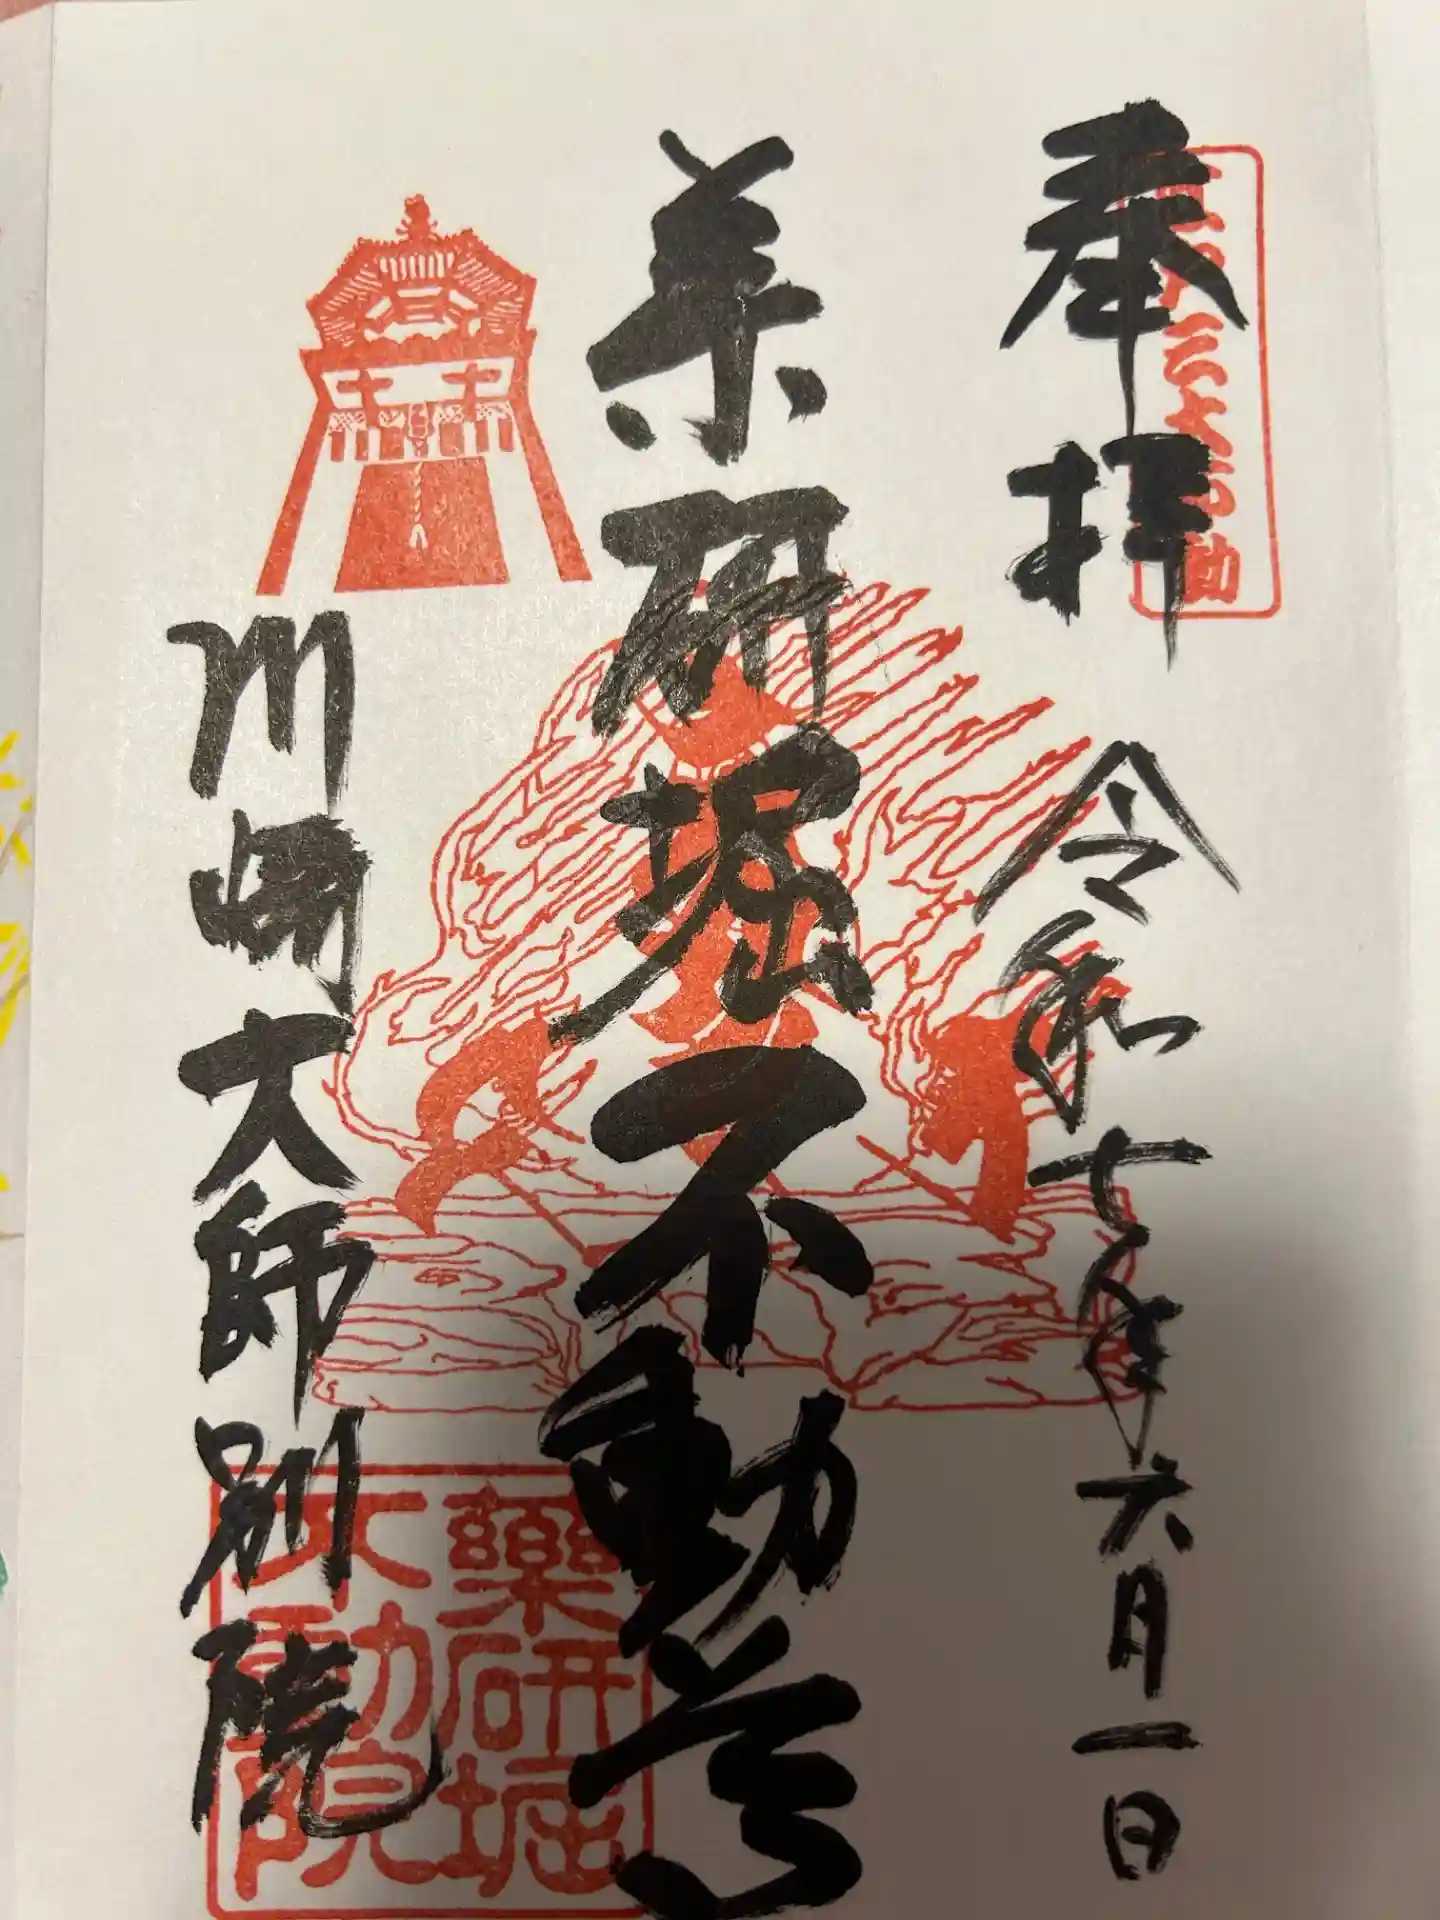 奉拝 令和七年六月一日
薬研堀不動尊
川崎大師別院
藥研堀
不動院